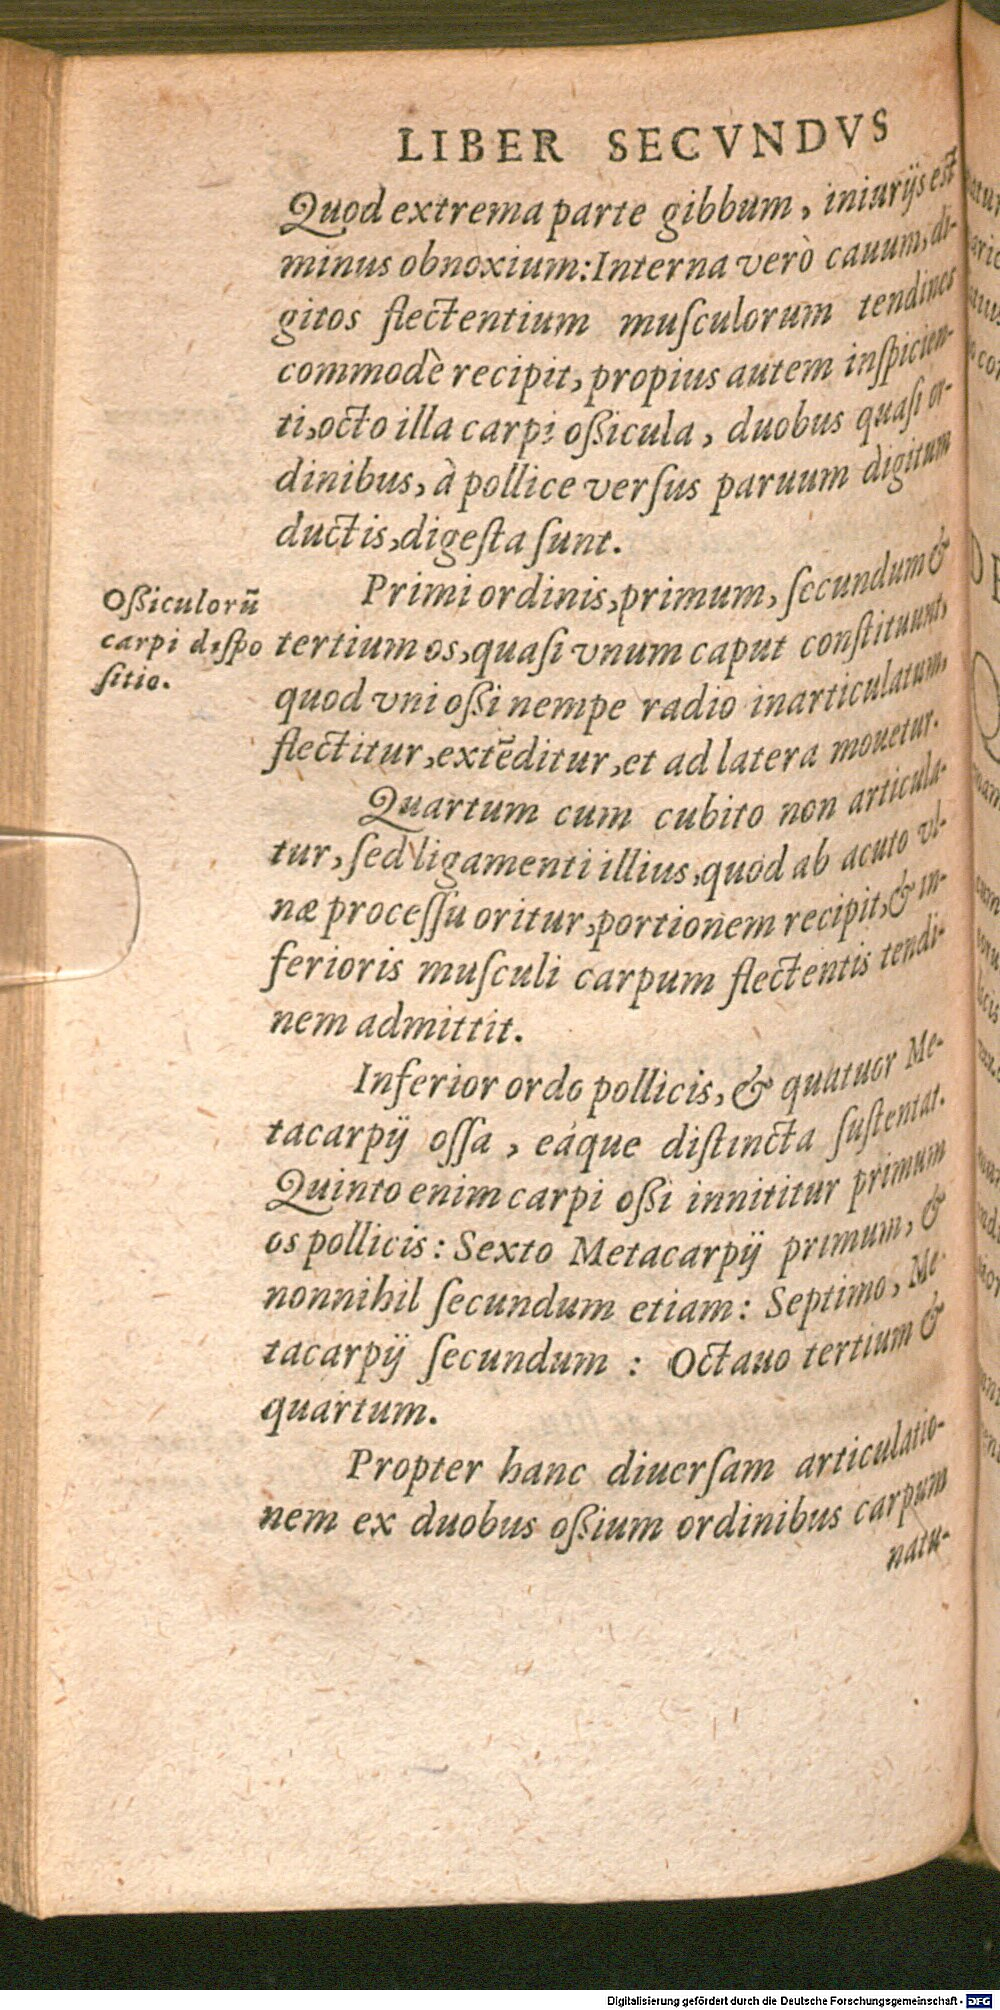 LIBER SECVNDVS
Quod extrema parte gibbum, iniurijs est
minus obnoxium: Interna verò cauum, di-
gitos flectentium musculorum tendines
commodè recipit, propius autem inspicien-
ti, octo illa carpi ossicula, duobus quasi or-
dinibus, à pollice versus paruum digitum
ductis, digesta sunt.
Ossiculorū
carpi dispo
sitio.
Primi ordinis, primum, secundum &
tertium os, quasi vnum caput constituunt,
quod vni ossi nempe radio inarticulatum,
flectitur, extēditur, et ad latera mouetur.
Quartum cum cubito non articula-
tur, sed ligamenti illius, quod ab acuto vl-
næ processu oritur, portionem recipit, & in-
ferioris musculi carpum flectentis tendi-
nem admittit.
Inferior ordo pollicis, & quatuor Me-
tacarpij ossa, eáque distincta sustentat.
Quinto enim carpi ossi innititur primum
os pollicis: Sexto Metacarpij primum, &
nonnihil secundum etiam: Septimo, Me-
tacarpij secundum: Octauo tertium &
quartum.
Propter hanc diuersam articulatio-
nem ex duobus ossium ordinibus carpum
natu-
Digitalisierung gefördert durch die Deutsche Forschungsgemeinschaft - DFG